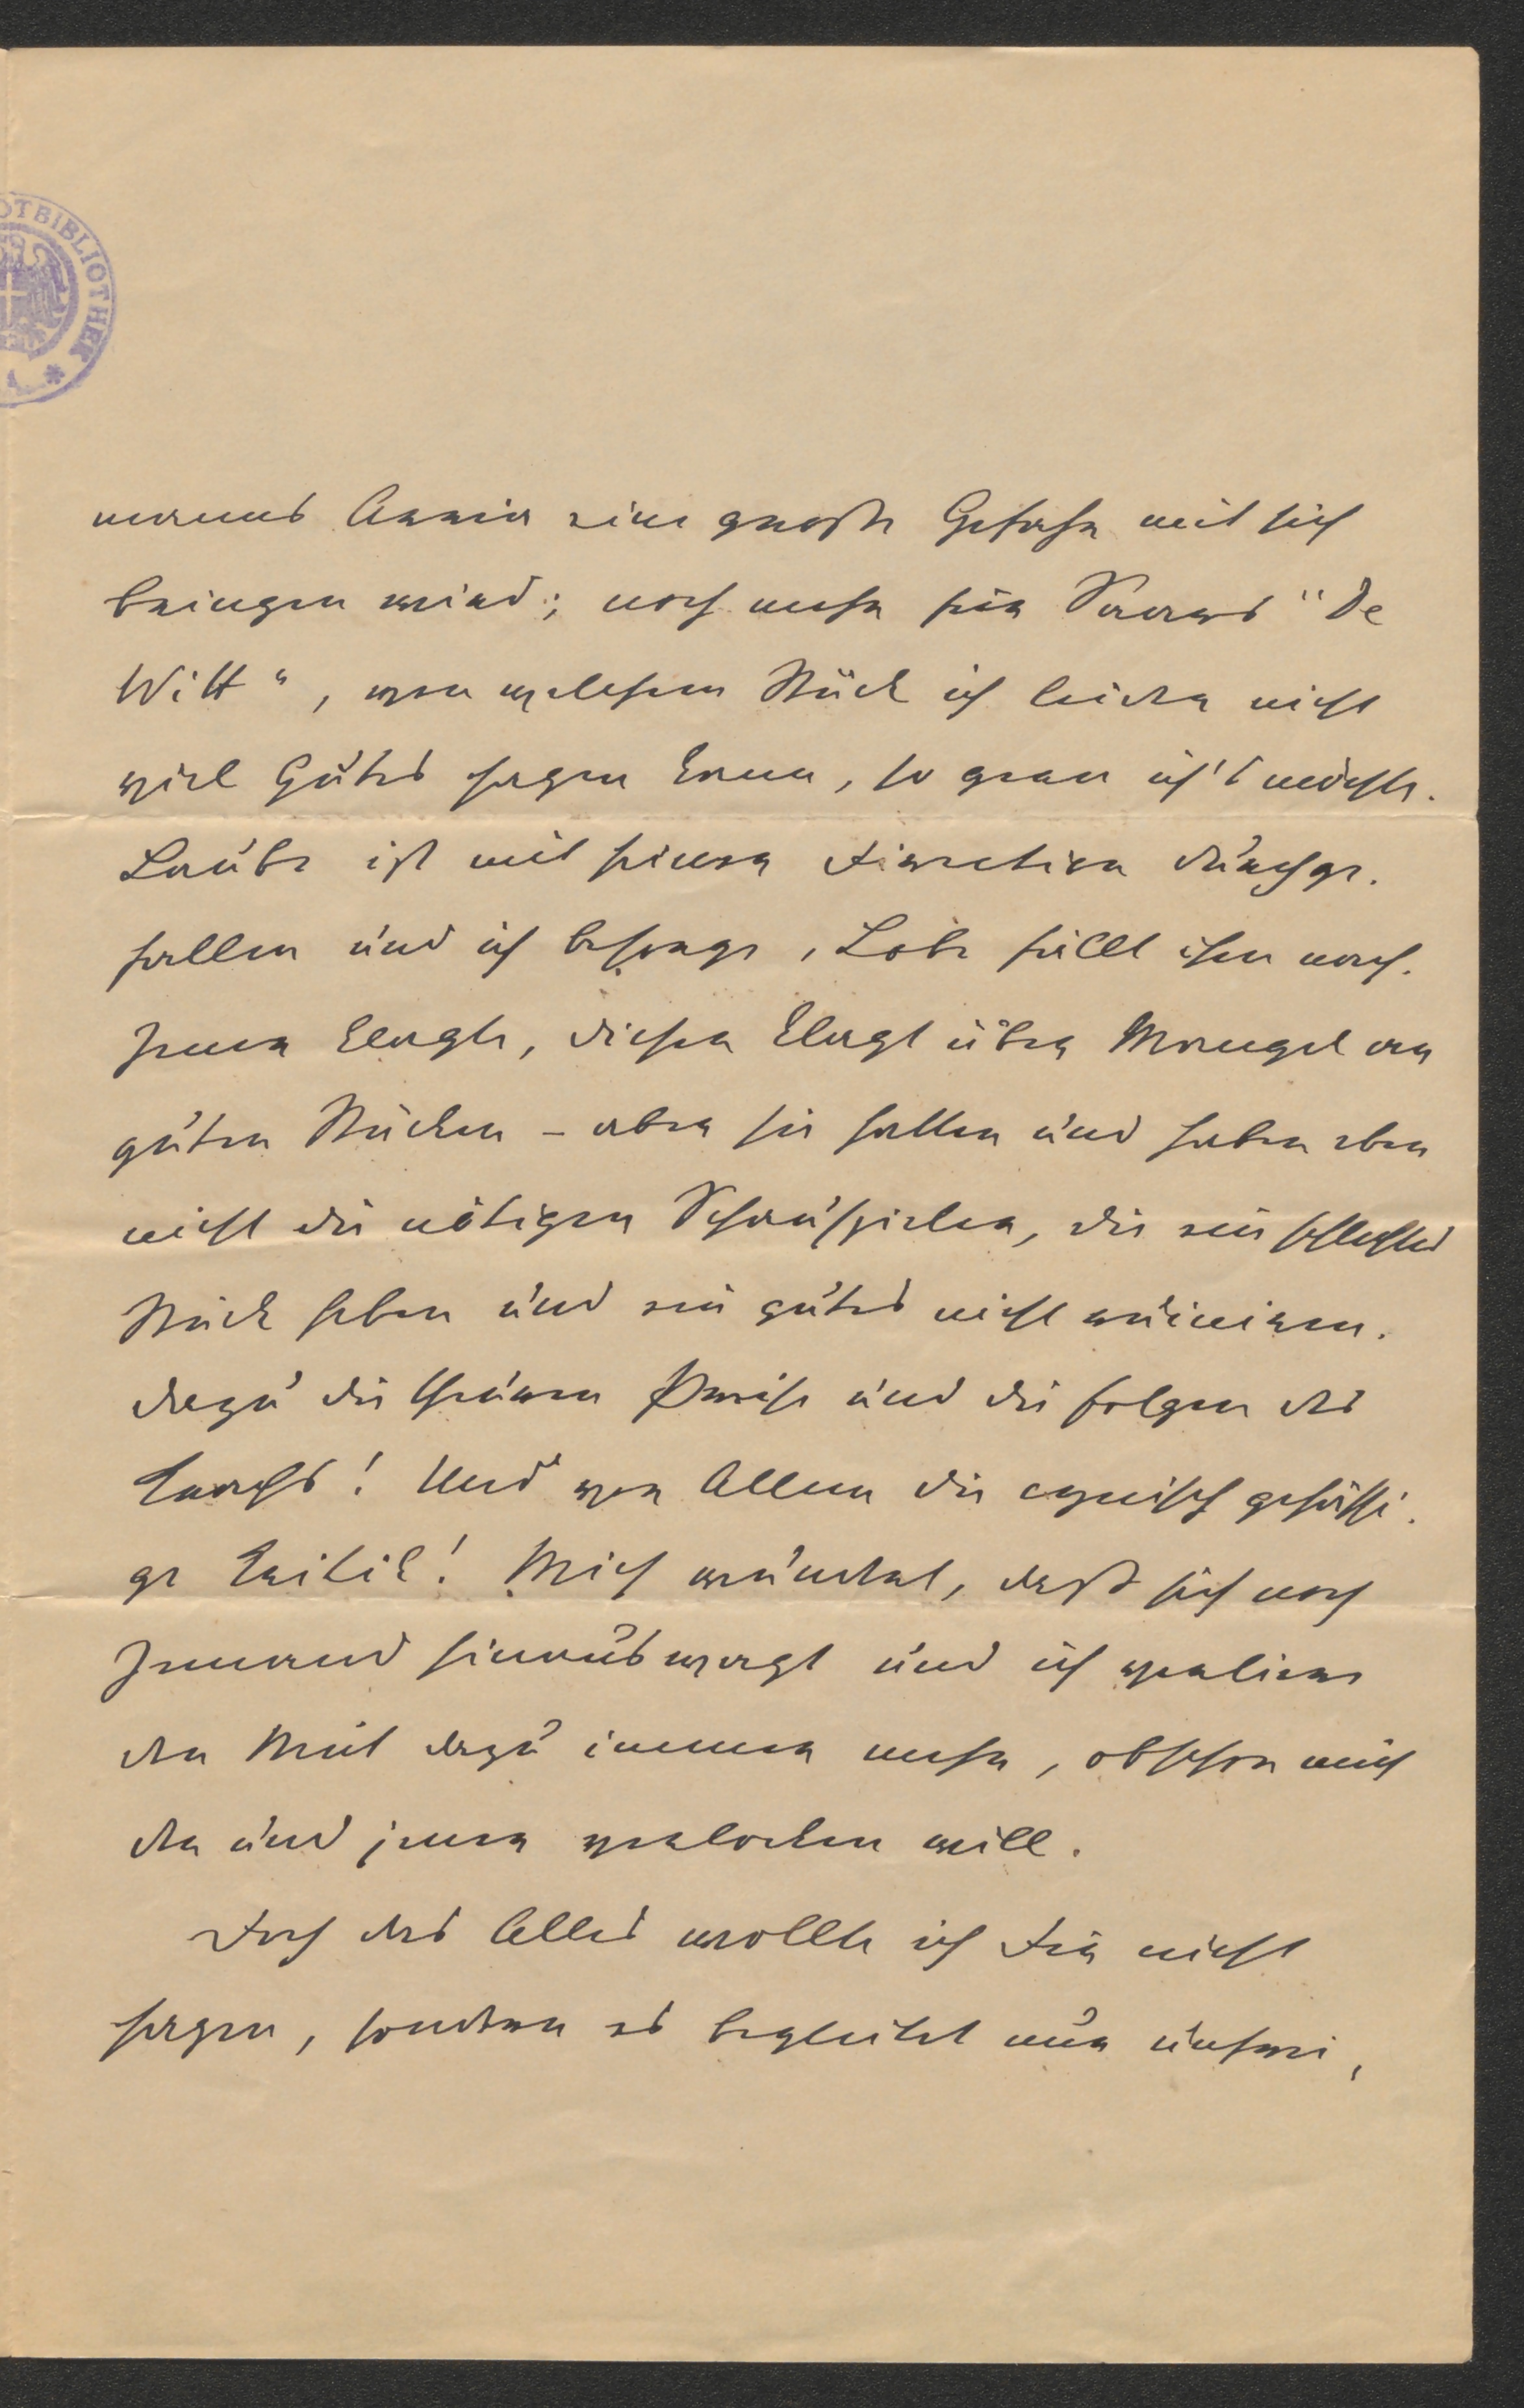 OTBIBLIOTHEK *
manns Arria eine große Gefahr mit sich
bringen wird; noch mehr für Saars "De
Witt", von welchem Stück ich leider nicht
viel Gutes sagen kann, so gern ich's möchte.
Laube ist mit seiner Direction durchge-
fallen und ich besorge, Lobe fällt ihm nach.
Jener klagte, dieser klagt über Mangel an
guten Stücken – aber sie hatten und haben eben
nicht die nötigen Schauspieler, die ein schlechtes
Stück heben und ein gutes nicht ruiniren.
dazu die theuren Preise und die Folgen des
Krachs! Und vor Allem die cynisch gehässi-
ge Kritik! Mich wundert, daß sich noch
Jemand hinauswagt und ich verliere
den Mut dazu immer mehr, obschon mich
der und jener verlocken will.
Doch das Alles wollte ich Dir nicht
sagen, sondern es begleitet nur unfrei-